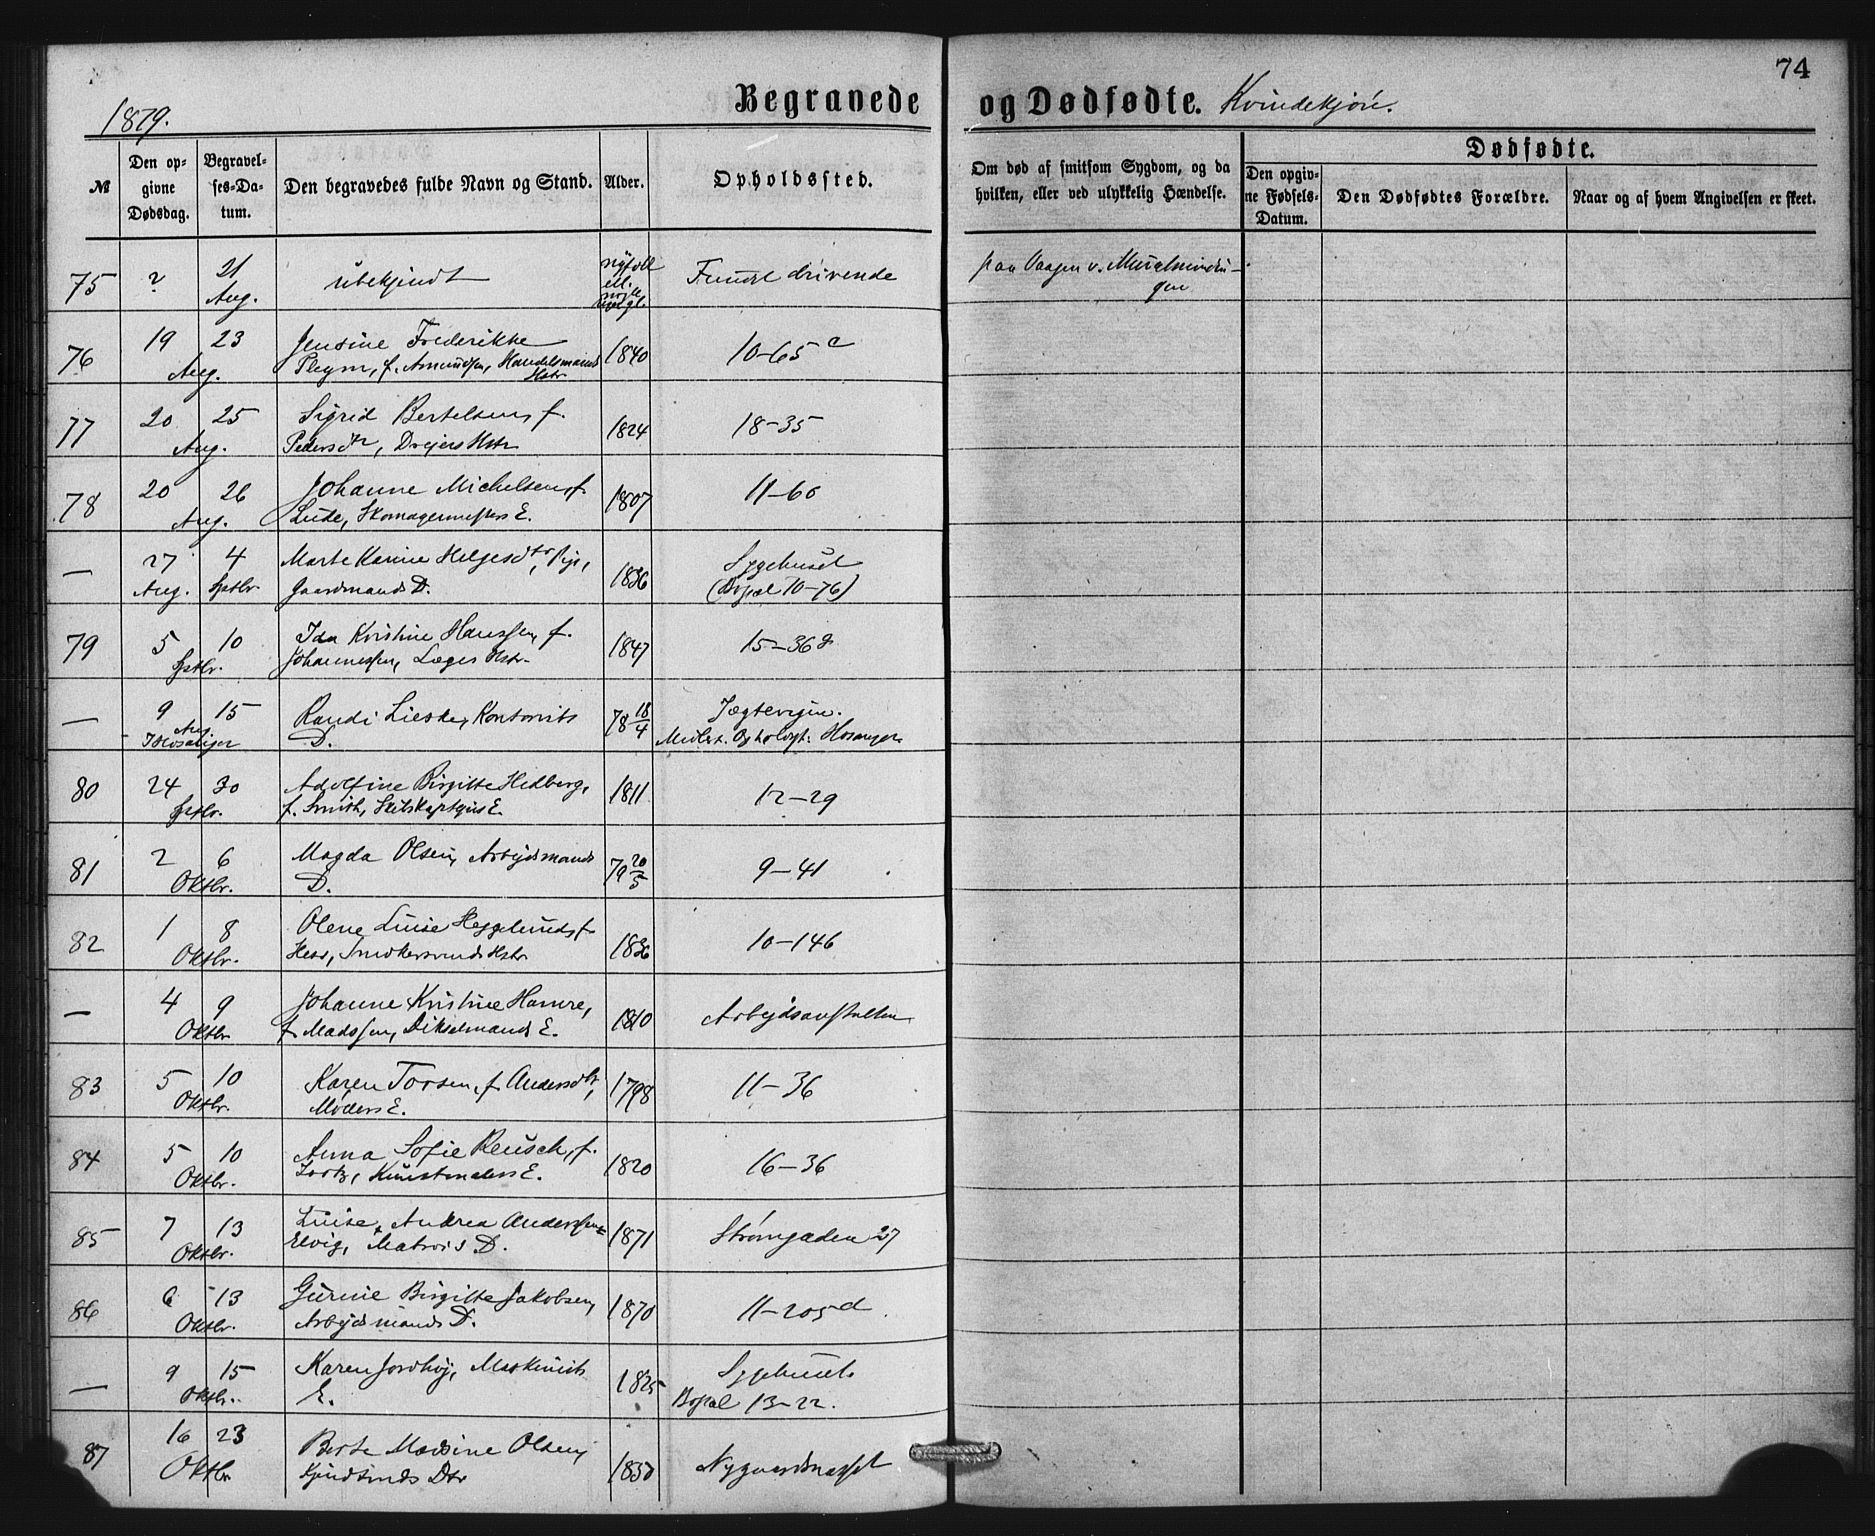 74
Begravede og Dødfødte. Kvindekjøn.
1879.
№
Den op-
givne
Dødsdag.
Begravel-
ses-Da-
tum.
Den begravedes fulde Navn og Stand.
Alder.
Opholdssted.
Om død af smitsom Sygdom, og da
hvilken, eller ved ulykkelig Hændelse.
Dødfødte.
Den opgiv-
ne Fødsels-
Datum.
Den Dødfødtes Forældre.
Naar og af hvem Angivelsen er skeet.
75 ? 21 Aug. ubekjendt Fundet drivende paa Vaagen v.
76 19 23 Jensine Frederikke 1840 10-65 a
Aug. Pleym, f. Amundsen, Handelsmands
Hstr
77 20 25 Sigrid Bertelsen, f. 1824 18-35
Aug. Pedersdtr, Drejers Hstr
78 20 26 Johanne Michelsen, f. 1807 11-60
Aug. Lude, Skomagermesters E.
— 27 4 Marte Karine Helgesdtr, Pige, 1836 Sygehuset
Aug. Sptbr Gaardmands D. (Bopæl 10-76)
79 5 10 Ida Kristine Hanssen, f. 1847 15-36
Sptbr. Johannessen, Læges Hstr.
— 9 15 Randi Lieske, Kontorists 78 18/4 Jægtevigen.
Aug. D. Midlert. Opholdsst: Hosanger
I Hosanger
80 24 30 Adolfine Birgitte Hedberg, 1811 12-29
Sptbr. f. Smith, Skibskapteins E.
81 2 6 Magda Olsen, Arbejdsmands 79 20/5 9-41
Oktbr. D.
82 1 8 Olene Luise Heggelund, f. 1836 10-146
Oktbr. Hess, Smedkersvends Hstr
— 4 9 Johanne Kristine Hamre, 1810 Arbejdsanstalten
Oktbr f. Madssen, Dikselmands E.
83 5 10 Karen Torsen, f. Andersdtr, 1798 11-36
Oktbr. Møders E.
84 5 10 Anna Sofie Reusch, f. 1820 16-36
Oktbr. Kunstmalers E.
85 7 13 Luise Andrea Anderssen 1871 Strømgaden 27
Oktbr. Elvig, Matros D.
86 6 13 Gurine Birgitte Jakobsen, 1870 11-205 d.
Oktbr. Arbejdsmands D.
— 9 15 Karen Jordhøj, Maskinists 1825 Sygehuset.
Oktbr. E. Bopæl 13-22.
87 16 23 Berte Madsine Olsen, 1850 Nygaardsnæsset
Oktbr Dtr